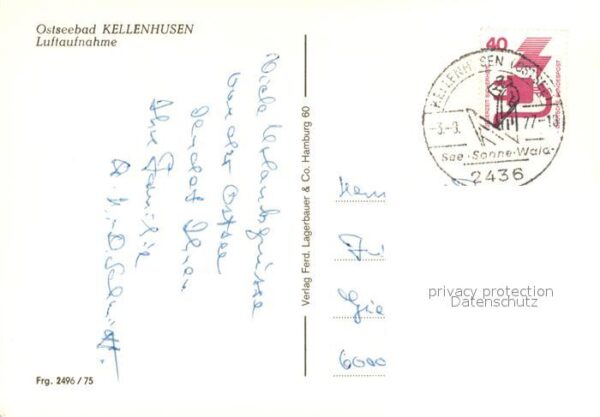 Ostseebad KELLENHUSEN
Luftaufnahme
Viele Urlaubsgrüsse
von der Ostsee
sendet Ihnen
Ihre Familie
Verlag Ferd. Lagerbauer & Co. Hamburg 60
40
DEUTSCHE BUNDESPOST
KELLENHUSEN (OSTSEE)
-3.-9. 77-18
See·Sonne·Wald
2436
Herrn
6000
privacy protection
Datenschutz
Frg. 2496/75